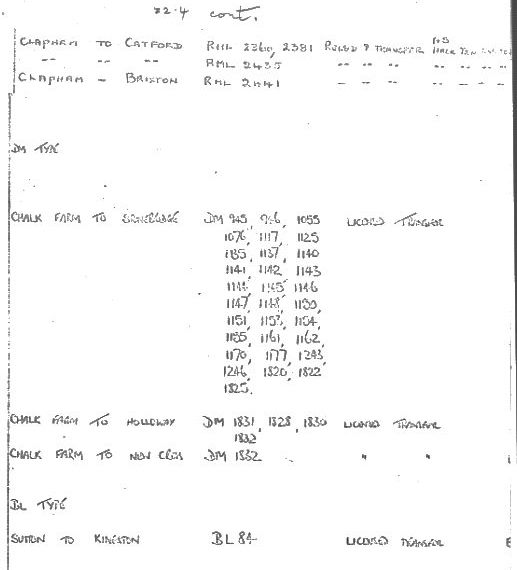 22.4 cont.
CLAPHAM TO CATFORD RML 2360, 2381 TRANSFER
-- -- -- RML 2435 -- -- -- -- -- -- --
CLAPHAM - BRIXTON RML 2441 -- -- -- - -- -- --
DM TYPE
CHALK FARM TO DM 945, 946, 1055 LICENSED TRANSFER
1076, 1117, 1125
1135, 1137, 1140
1141, 1142 1143
1144, 1145 1146
1147, 1148, 1150,
1151, 1153, 1154,
1155, 1161, 1162,
1170, 1177, 1243,
1246, 1820, 1822
1825.
CHALK FARM TO HOLLOWAY DM 1831, 1828, 1830 LICENSED TRANSFER
1832
CHALK FARM TO NEW CROSS DM 1832 " "
BL TYPE
SUTTON TO KINGSTON BL 84 LICENSED TRANSFER